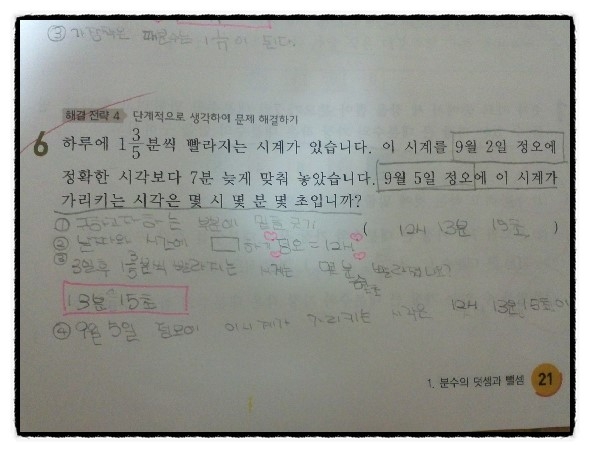 ③ 가장작은 대분수는 1 이 된다.
해결 전략 4 단계적으로 생각하여 문제 해결하기
6 하루에 1 3/5 분씩 빨라지는 시계가 있습니다. 이 시계를 9월 2일 정오에
정확한 시각보다 7분 늦게 맞춰 놓았습니다. 9월 5일 정오에 이 시계가
가리키는 시각은 몇 시 몇 분 몇 초입니까?
( 12시 13분 15초 )
① 구하고자하는 부분에 밑줄 긋기
② 날짜와 시간에 □하기 정오=12시
③ 3일후 1 3/5 분씩 빨라지는 시계는 몇분 몇초 빨라집니까?
13분 15초
④ 9월 5일 정오에 이시계가 가리키는 시각은 12시 13분 15초이
1. 분수의 덧셈과 뺄셈 21